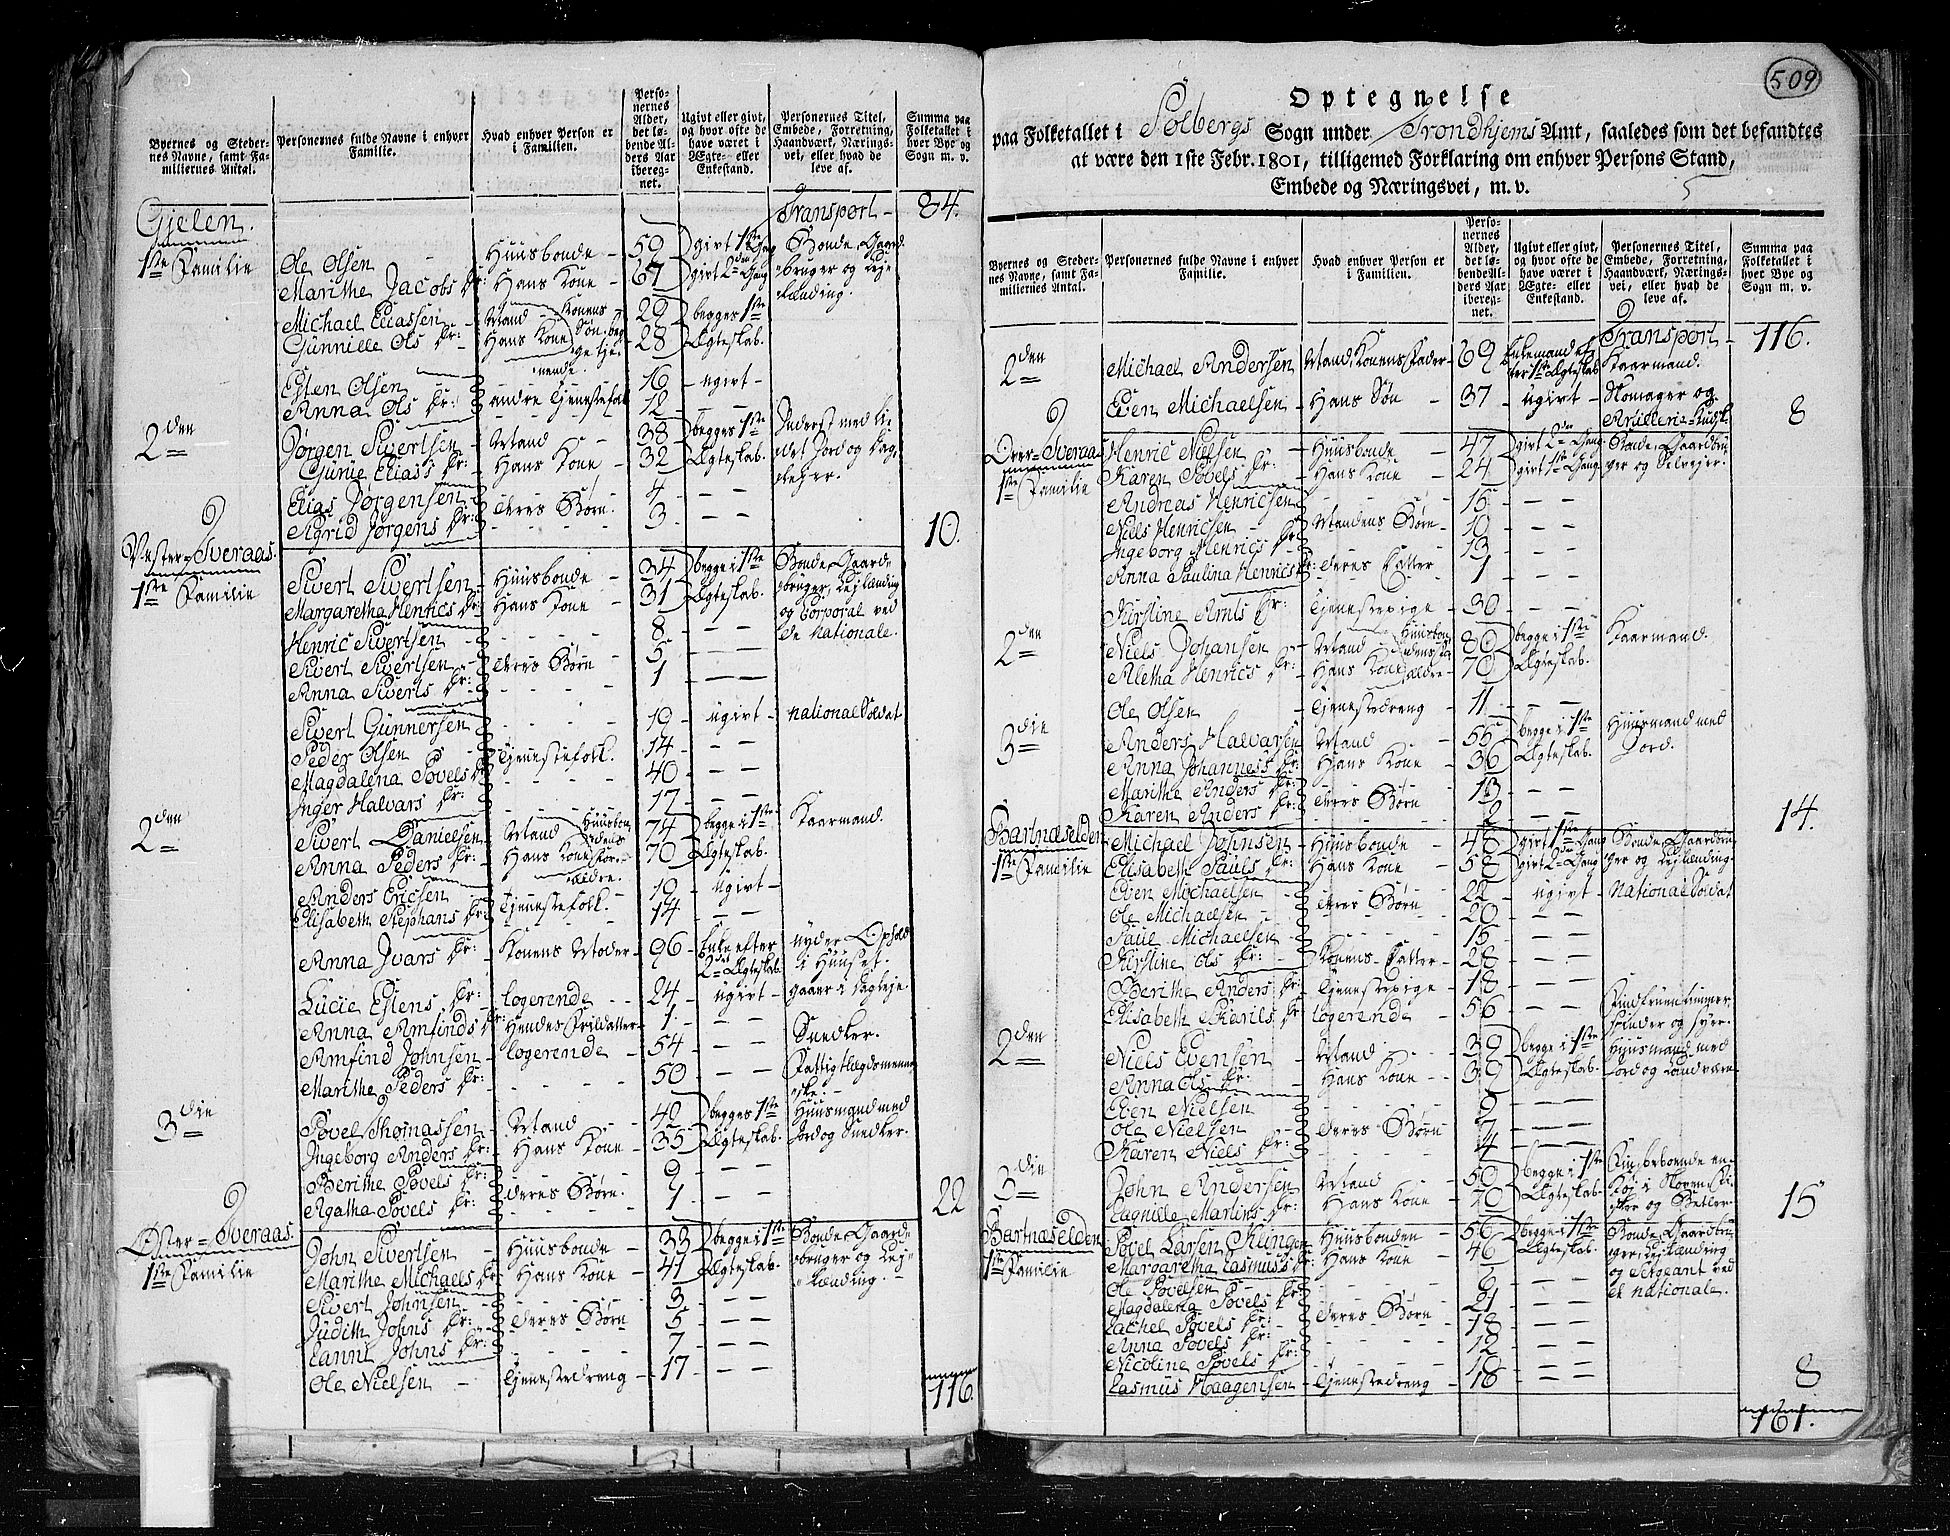 509
Byernes og Stedernes Navne, samt Familiernes Antal.
Personernes fulde Navne i enhver Familie.
Hvad enhver Person er i Familien.
Personernes Alder, det løbende Alders Aar iberegnet.
Ugivt eller givt, og hvor ofte de have været i Ægte- eller Enkestand.
Personernes Titel, Embede, Forretning, Haandværk, Næringsvei, eller hvad de leve af.
Summa paa Folketallet i hver Bye og Sogn m. v.
Transport 84.
Gjelen.
1ste Familie Ole Olsen Huusbonde 59 givt 1ste Gang Bonde, Gaard-
Marithe Jacobs Dr: Hans Kone 67 givt 2den Gang bruger og Lej-
lænding.
Michael Eliassen Mand 29 begges 1ste
Gunnille Ols Dr: Hans Kone 28 Ægteskab.
Esten Olsen 16 ugivt
Anna Ols Dr: andre Tjenestefolk 12 — —
2den Jørgen Sivertsen Mand 38 begges 1ste Inderst med li-
Gurue Elias Dr: Hans Kone 32 Ægteskab. det Jord og Dag-
Elias Jørgensen deres Børn 4 — —
Sigrid Jørgens Dr: 3 — — 10.
Vester-Sveraas.
1ste Familie Sivert Sivertsen Huusbonde 34 begge i 1ste Bonde, Gaard-
Margaretha Henrics Dr: Hans Kone 31 Ægteskab. bruger, Lejlænding
og Corporal ved
Henric Sivertsen 8 — — de nationale.
Sivert Sivertsen deres Børn 5 — —
Anna Siverts Dr: 1 — —
Sivert Gunnersen 19 ugivt national Soldat
Peder Olsen Tjenestefolk. 14 — —
Magdalena Povels Dr: 40 — —
Inger Halvars Dr: 17 — —
2den Sivert Danielsen Mand 74 begge i 1ste Kaarmand.
Anna Peders Dr: Hans Kone 70 Ægteskab.
Anders Ericsen 19 ugivt
Elisabeth Stephans Dr: Tjenestefolk. 14 — —
Anna Ivars Dr: Konens Moder 96 Enke efter nyder Ophold
2det Ægteskab i Huuset.
Lucie Estens Dr: logerende 24 ugivt gaaer i Dagleje.
Anna Arnfinds Dr: Hendes Frildatter 1 — —
Arnfind Johnsen logerende 54 — — Snedker.
Marithe Peders Dr: 50 — — Fattig Lægdsmenne-
ske.
3die Povel Thomassen Mand 42 begges 1ste Huusmand med
Ingeborg Anders Dr: Hans Kone 35 Ægteskab. Jord og Snedker.
Berithe Povels Dr: 9 — —
Agatha Povels Dr: deres Børn. 1 — — 22
Øster-Sveraas.
1ste Familie John Sivertsen Huusbonde 33 begge i 1ste Bonde, Gaard-
Marithe Michaels Dr: Hans Kone 41 Ægteskab. bruger og Lej-
lænding.
Sivert Johnsen 3 — —
Judith Johns Dr: deres Børn 5 — —
Lanni Johns Dr: 7 — —
Ole Nielsen Tjenestedreng 17 — —
116.
Optegnelse
paa Folketallet i Solbergs Sogn under Trondhjems Amt, saaledes som det befandtes
at være den 1ste Febr. 1801, tilligemed Forklaring om enhver Persons Stand,
Embede og Næringsvei, m. v.
5
Byernes og Stedernes Navne, samt Familiernes Antal.
Personernes fulde Navne i enhver Familie.
Hvad enhver Person er i Familien.
Personernes Alder, det løbende Alders Aar iberegnet.
Ugivt eller givt, og hvor ofte de have været i Ægte- eller Enkestand.
Personernes Titel, Embede, Forretning, Haandværk, Næringsvei, eller hvad de leve af.
Summa paa Folketallet i hver Bye og Sogn m. v.
Transport 116.
2den Michael Andersen Mand, Konens Fader 69 Enkemand ef-
ter 1ste Ægteskab Kaarmand.
Even Michaelsen Hans Søn 37 ugivt Skomager og
8
Over-Sveraas Henric Nielsen Huusbonde 47 givt 2den Gang Bonde, Gaardbru-
1ste Familie Karen Povels Dr: Hans Kone 24 givt 1ste Gang ger og Selvejer.
Andreas Henricsen 15 — —
Niels Henricsen Mandens Børn 10 — —
Ingeborg Henrics Dr: 13 — —
Anna Paulina Henrics Dr: deres Datter 1 — —
Kirstine Arnts Dr: Tjenestepige 30 — —
2den Niels Johansen Mand 80 begge i 1ste Kaarmand.
Aletha Henrics Dr: Hans Kone 70 Ægteskab.
Ole Olsen Tjenestedreng 11 — —
3die Anders Halvarsen Mand 55 begge i 1ste Huusmand med
Anna Johannes Dr: Hans Kone 36 Ægteskab. Jord.
Marithe Anders Dr: 13 — —
Karen Anders Dr: deres Børn 2 — — 14.
Bartnæselden
1ste Familie Michael Johnsen Huusbonde 48 givt 1ste Gang Bonde, Gaardbru-
Elisabeth Pauls Dr: Hans Kone 58 givt 2den Gang ger og Lejlænding
Even Michaelsen 22 ugivt National Soldat
Ole Michaelsen deres Børn 20 — —
Paul Michaelsen 15 — —
Kirstine Ols Dr: Konens Datter 28 — —
Berithe Anders Dr: Tjenestepige 18 — —
Elisabeth Dr: logerende 56 — —
spinder og syer.
2den Niels Evensen Mand 39 begge i 1ste Huusmand med
Anna Ols Dr: Hans Kone 39 Ægteskab.
Even Nielsen 9 — —
Ole Nielsen deres Børn 7 — —
Karen Niels Dr: 4 — —
3die John Andersen Mand 50 begge i 1ste
Lagnille Martins Dr: Hans Kone 40 Ægteskab. 15
Bartnæselden
1ste Familie Povel Larsen Klingen Huusbonden 56 begge i 1ste Bonde, Gaardbru-
Margaretha Rasmus Dr: Hans Kone 46 Ægteskab. ger, Lejlænding
og Sergeant ved
Ole Povelsen 6 — — de nationale.
Magdalena Povels Dr: 21 — —
Rachel Povels Dr: deres Børn 18 — —
Anna Povels Dr: 12 — —
Nicoline Povels Dr: 10 — —
Rasmus Haagensen Tjenestedreng 18 — — 8
161.